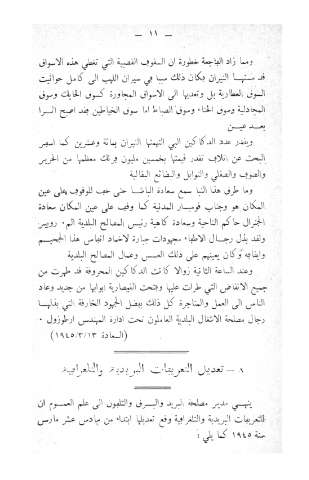 — ١١ —
ومما زاد الفاجعة خطورة ان السقوف القصبية التي تغطي هذه الاسواق
قد مستها النيران فكان ذلك سببا في سريان اللهب الى كامل حوانيت
السوق العطارية بل وتعديها الى الاسواق المجاورة كسوق الحايك وسوق
المجادلية وسوق الحناء وسوق الصاغة اما سوق الخياطين فقد اصبح اثرا
بعد عين
ويقدر عدد الدكاكين التي التهمتها النيران بمائة وعشرين كما اسفر
البحث عن اتلاف تقدر قيمتها بخمسين مليون فرنك معظمها من الحرير
والصوف والصقلي والتوابل والبضائع البقالية
وما طرق هذا النبا سمع سعادة الباشا حتى خف للوقوف على عين
المكان هو وجناب قوميسار المدنية كما وقف على عين المكان سعادة
الجنرال حاكم الناحية وسعادة كاهية رئيس المصالح البلدية الم. روبير
ولقد بذل رجال الاطفاء مجهودات جبارة لاخماد انفاس هذا الجحيم
وايقافه وكان يعينهم على ذلك العسس وعمال المصالح البلدية
وعند الساعة الثانية زوالا كانت الدكاكين المحروقة قد طهرت من
جميع الانقاض التي طرات عليها وفتحت القيصارية ابوابها من جديد وعاد
الناس الى العمل والمتاجرة كل ذلك بفضل الجهود الخارقة التي بذلها
رجال مصلحة الاشغال البلدية العاملون تحت ادارة المهندس ارطوزول .
(السعادة ١٩٤٥/٣/١٣)
٨ - تعديل التعريفات البريدية والتلغرافية
ينهي مدير مصلحة البريد والبرق والتلفون الى علم العموم ان
التعريفات البريدية والتلغرافية وقع تعديلها ابتداء من سادس عشر مارس
سنة ١٩٤٥ كما يلي :